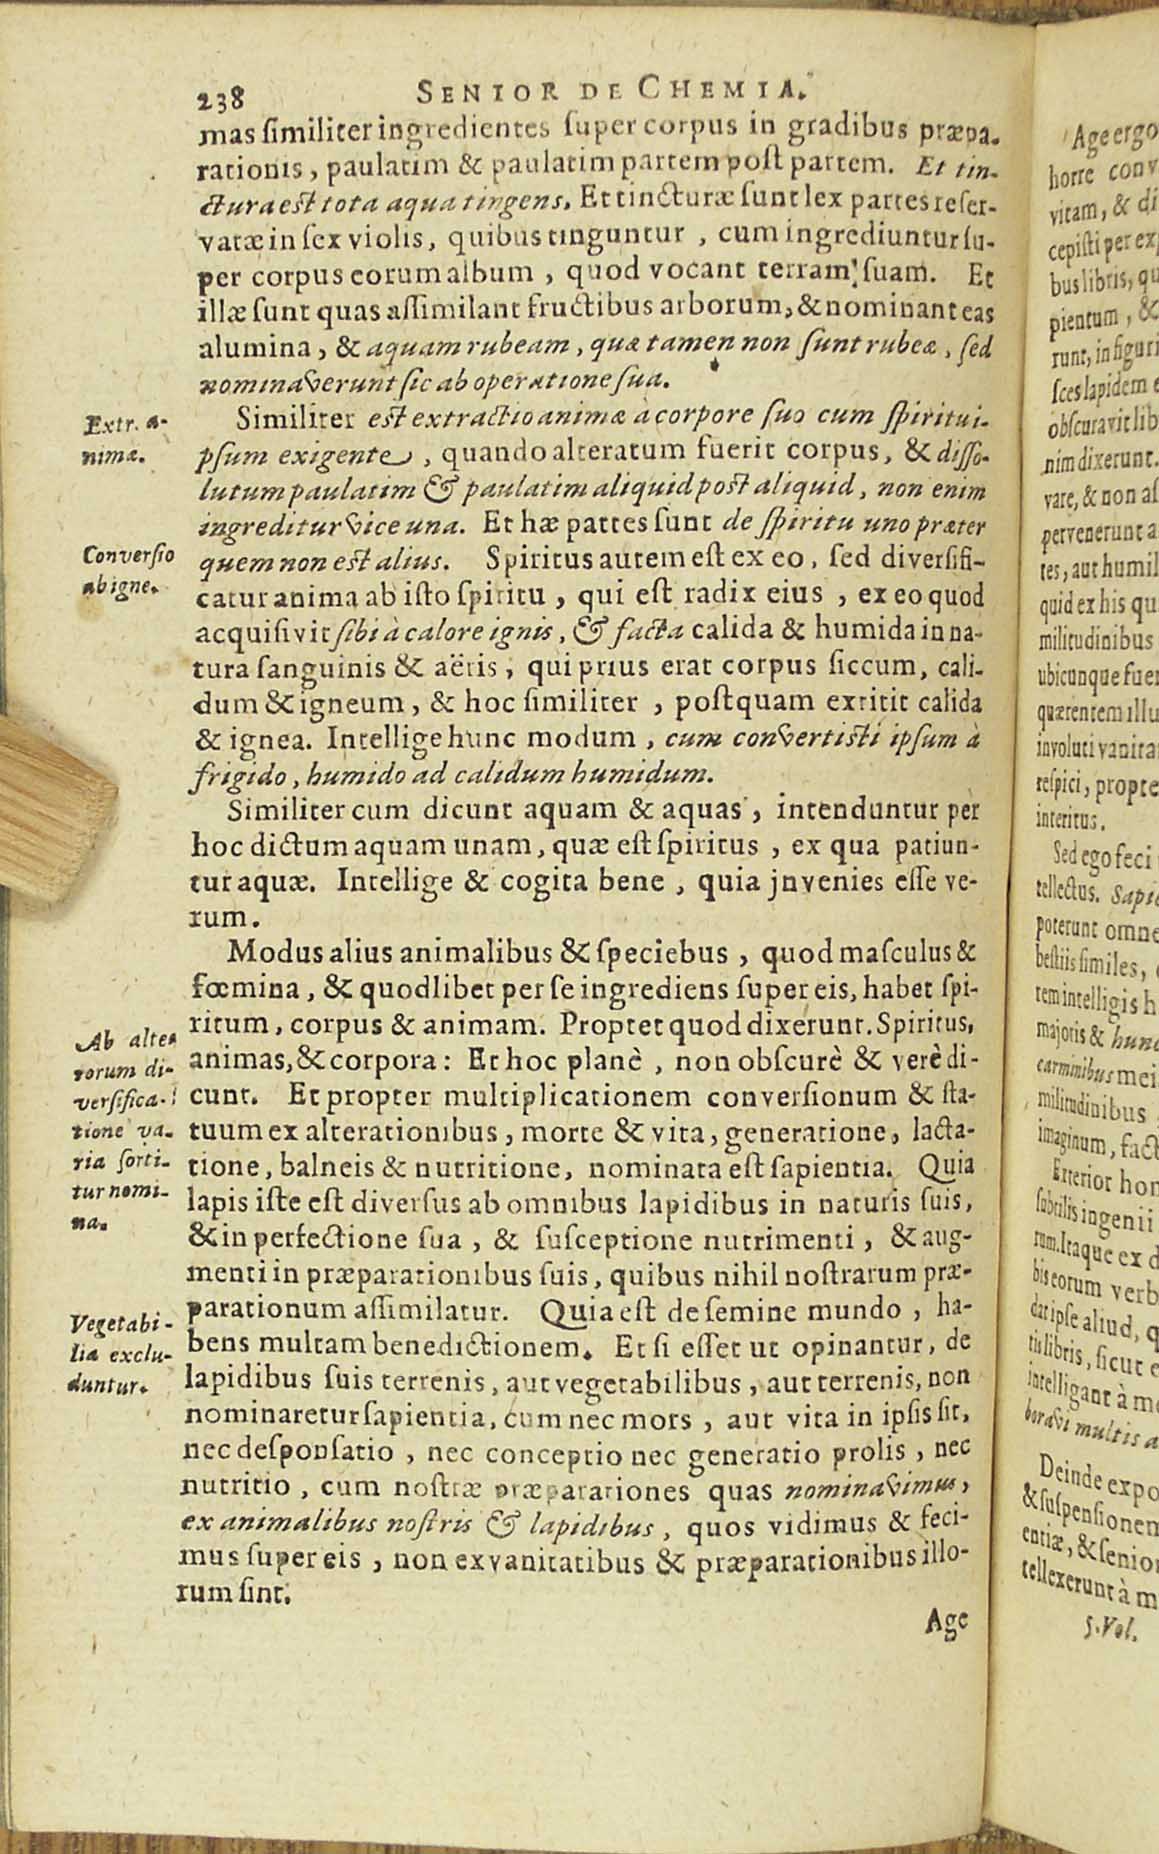 238 SENIOR DE CHEMIA.
mas ſimiliter ingredientes ſuper corpus in gradibus præpa-
rationis, paulatim & paulatim partem poſt partem. Et tin-
ctura eſt tota aqua tingens. Et tincturæ ſunt ſex partes reſer-
vatæ in ſex violis, quibus tinguntur, cum ingrediuntur ſu-
per corpus eorum album, quod vocant terram ſuam. Et
illæ ſunt quas aſſimilant fructibus arborum, & nominant eas
alumina, & aquam rubeam, quæ tamen non ſunt rubeæ, ſed
nominaverunt ſic ab operatione ſua.
Extr. a-
nimæ.
Similiter eſt extractio animæ à corpore ſuo cum ſpiritu i-
pſum exigente, quando alteratum fuerit corpus, & diſſo-
lutum paulatim & paulatim aliquid poſt aliquid, non enim
ingreditur vice una. Et hæ partes ſunt de ſpiritu uno præter
Converſio
ab igne.
quem non eſt alius. Spiritus autem eſt ex eo, ſed diverſifi-
catur anima ab iſto ſpiritu, qui eſt radix eius, ex eo quod
acquiſivit ſibi à calore ignis, & facta calida & humida in na-
tura ſanguinis & aëris, qui prius erat corpus ſiccum, cali-
dum & igneum, & hoc ſimiliter, poſtquam extitit calida
& ignea. Intellige hunc modum, cum convertiſti ipſum à
frigido, humido ad calidum humidum.
Similiter cum dicunt aquam & aquas, intenduntur per
hoc dictum aquam unam, quæ eſt ſpiritus, ex qua patiun-
tur aquæ. Intellige & cogita bene, quia jnvenies eſſe ve-
rum.
Modus alius animalibus & ſpeciebus, quod maſculus &
fœmina, & quodlibet per ſe ingrediens ſuper eis, habet ſpi-
ritum, corpus & animam. Propter quod dixerunt. Spiritus,
animas, & corpora: Et hoc planè, non obſcurè & verè di-
cunt. Et propter multiplicationem converſionum & ſta-
tuum ex alterationibus, morte & vita, generatione, lacta-
tione, balneis & nutritione, nominata eſt ſapientia. Quia
lapis iſte eſt diverſus ab omnibus lapidibus in naturis ſuis,
Ab alte-
rorum di-
verſifica-
tione va-
ria ſorti-
tur nomi-
na.
& in perfectione ſua, & ſuſceptione nutrimenti, & aug-
menti in præparationibus ſuis, quibus nihil noſtrarum præ-
parationum aſſimilatur. Quia eſt de ſemine mundo, ha-
Vegetabi-
lia exclu-
duntur.
bens multam benedictionem. Et ſi eſſet ut opinantur, de
lapidibus ſuis terrenis, aut vegetabilibus, aut terrenis, non
nominaretur ſapientia, cum nec mors, aut vita in ipſis ſit,
nec deſponſatio, nec conceptio nec generatio prolis, nec
nutritio, cum noſtræ præparationes quas nominavimus,
ex animalibus noſtris & lapidibus, quos vidimus & feci-
mus ſuper eis, non ex vanitatibus & præparationibus illo-
rum ſint.
Age
Age ergo
horre conv
vitam, & di
cepiſti per exp
bus libris, qu
pientum, &
runt, in figuri
ſces lapidem e
obſcuravit lib
nim dixerunt.
vare, & non aſ
pervenerunt a
tes, aut humil
quid ex his qu
militudinibus
ubicunque fuer
quærentem illu
involuti vanita
reſpici, propte
interitus.
Sed ego feci
tellectus. Sapie
poterunt omne
beſtiis ſimiles,
rem intelligis h
majoris & hunc
carminibus mei
militudinibus
imaginum, fact
Exterior hom
ſubtilis ingenii
rum. Itaque ex d
bis eorum verb
dat ipſe aliud, q
tis libris, ſicut e
intelligant à me
boravi multis a
Deinde expo
& ſuſpenſionem
entiæ, & ſenior
tellexerunt à m
5. Vol.